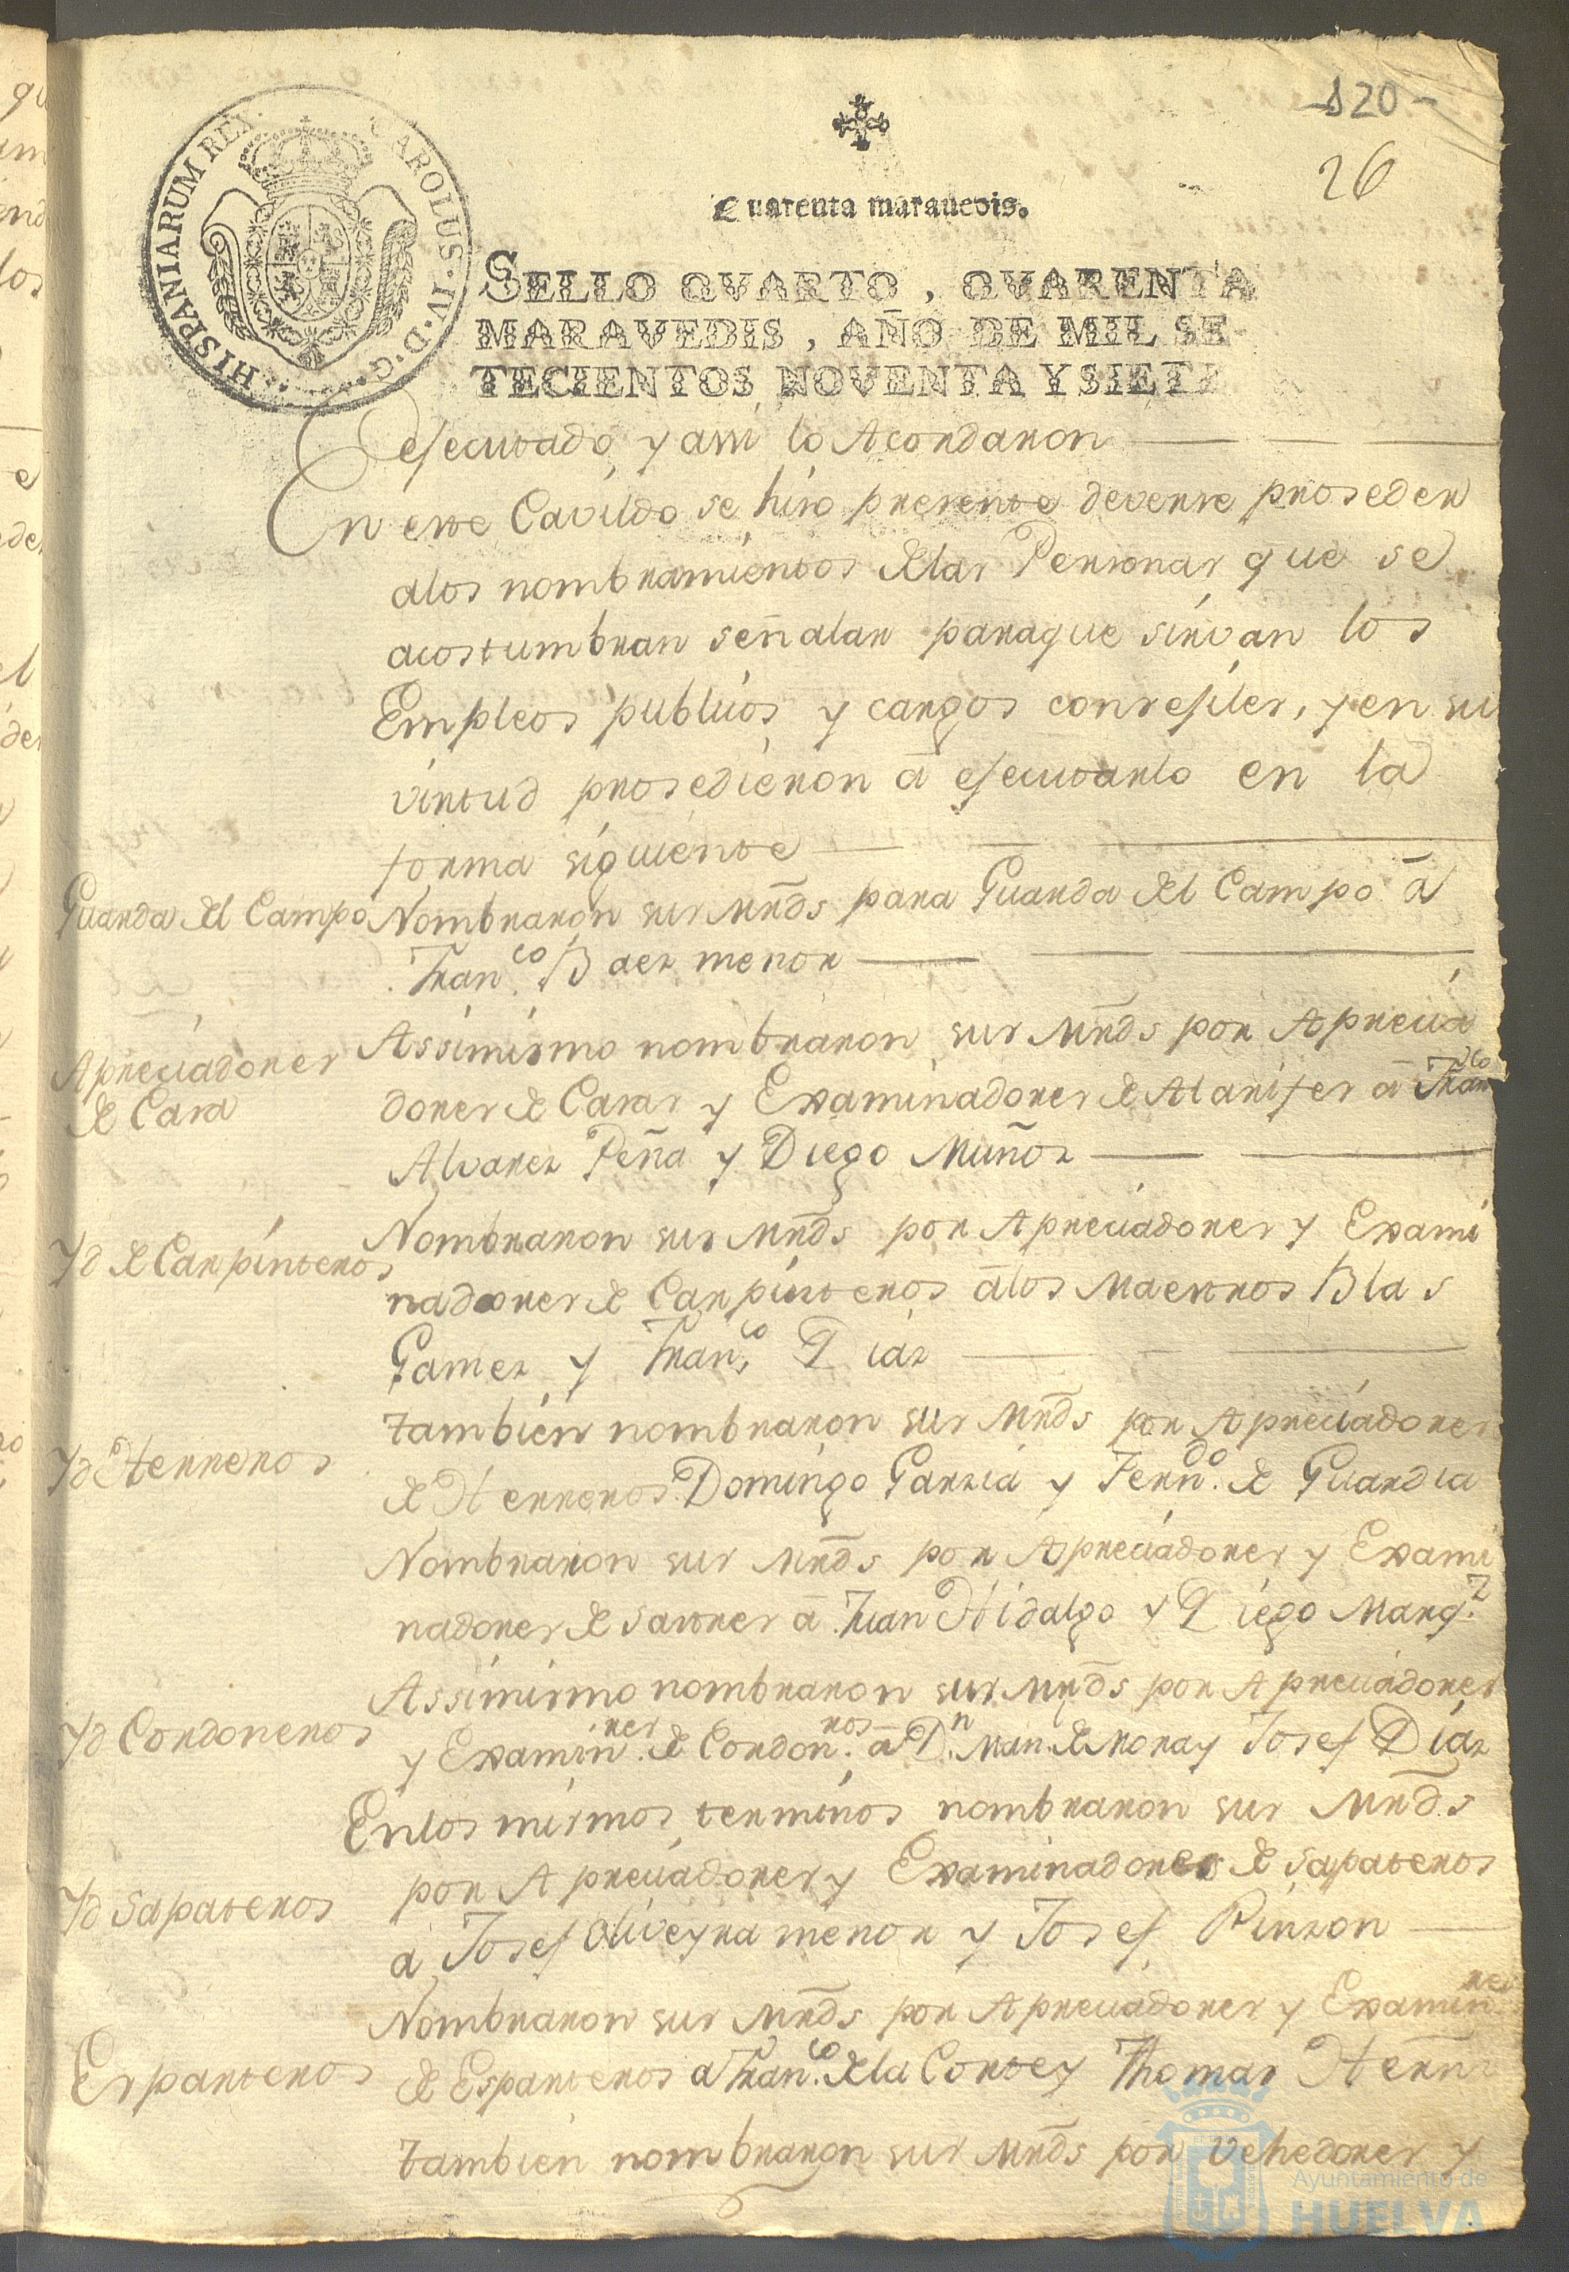 -120-
26
Quarenta marauedis.
HISPANIARUM REX. CAROLUS. IV. D. G.
SELLO QVARTO, QVARENTA
MARAVEDIS, AÑO DE MIL SE-
TECIENTOS NOVENTA Y SIETE
efecutado, y assi lo Acordaron
En este Cavildo se hiso presente deverse proseder
alos nombramientos delas Personas que se
acostumbran señalar paraque sirvan los
Empleos publicos y cargos consejiles, y en su
virtud prosedieron â efecutarlo en la
forma siguiente
Guarda del Campo
Nombraron sus Mrds para Guarda del Campo â
Franco. Baez menor
Apreciadores
de Casa
Assimismo nombraron sus Mrds por Aprecia
dores de Casas y Examinadores de Alarifes â
Alvarez Peña y Diego Muñoz
Yd de Carpinteros
Nombraron sus Mrds por Apreciadores y Exami
nadores de Carpinteros âlos Maestros Blas
Gamez y Franco. Diaz
Yd Herreros
tambien nombraron sus Mrds por Apreciadores
de Herreros Domingo Garzia y Ferndo. de Guardia
Nombraron sus Mrds por Apreciadores y Exami
nadores de Sastres â Juan Hidalgo y Diego Marqz.
Yd Cordoneros
Assimismo nombraron sus Mrds por Apreciadores
y Examinres. de Cordonros. â Dn. Man. de Mora y Josef Diaz
Enlos mismos terminos nombraron sus Mrds
Yd Sapateros
por Apreciadores y Examinadores de Sapateros
a Josef Oliveyra menor y Josef Pinzon
Nombraron sus Mrds por Apreciadores y Examinres.
Esparteros
de Esparteros a Franco. dela Corte y Thomas Hern
tambien nombraron sus Mrds por Vehedores y
Ayuntamiento de
HUELVA